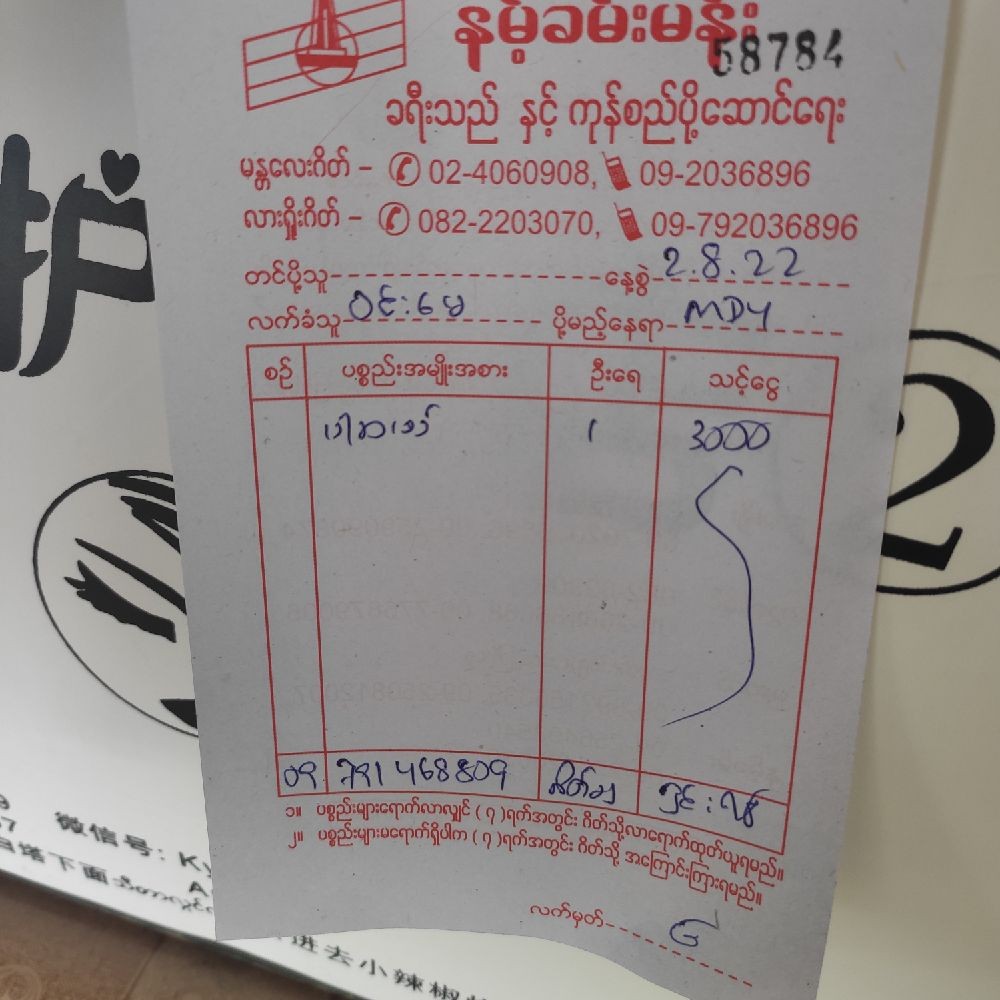 နမ့်ခမ်းမန်း
58784
ခရီးသည် နှင့် ကုန်စည်ပို့ဆောင်ရေး
မန္တလေးဂိတ် - 02-4060908, 09-2036896
လားရှိုးဂိတ် - 082-2203070, 09-792036896
တင်ပို့သူ နေ့စွဲ 2.8.22
လက်ခံသူ ဝင်းမေ ပို့မည့်နေရာ MDY
စဉ် ပစ္စည်းအမျိုးအစား ဦးရေ သင့်ငွေ
ပါဆယ် 1 3000
09 791468809 ဂိတ်ချ ရှင်းပြီး
၁။ ပစ္စည်းများရောက်လာလျှင် ( ၇ )ရက်အတွင်း ဂိတ်သို့လာရောက်ထုတ်ယူရမည်။
၂။ ပစ္စည်းများမရောက်ရှိပါက ( ၇ )ရက်အတွင်း ဂိတ်သို့ အကြောင်းကြားရမည်။
လက်မှတ်
护
2
微信号: Ky
塔下面
进去小辣椒